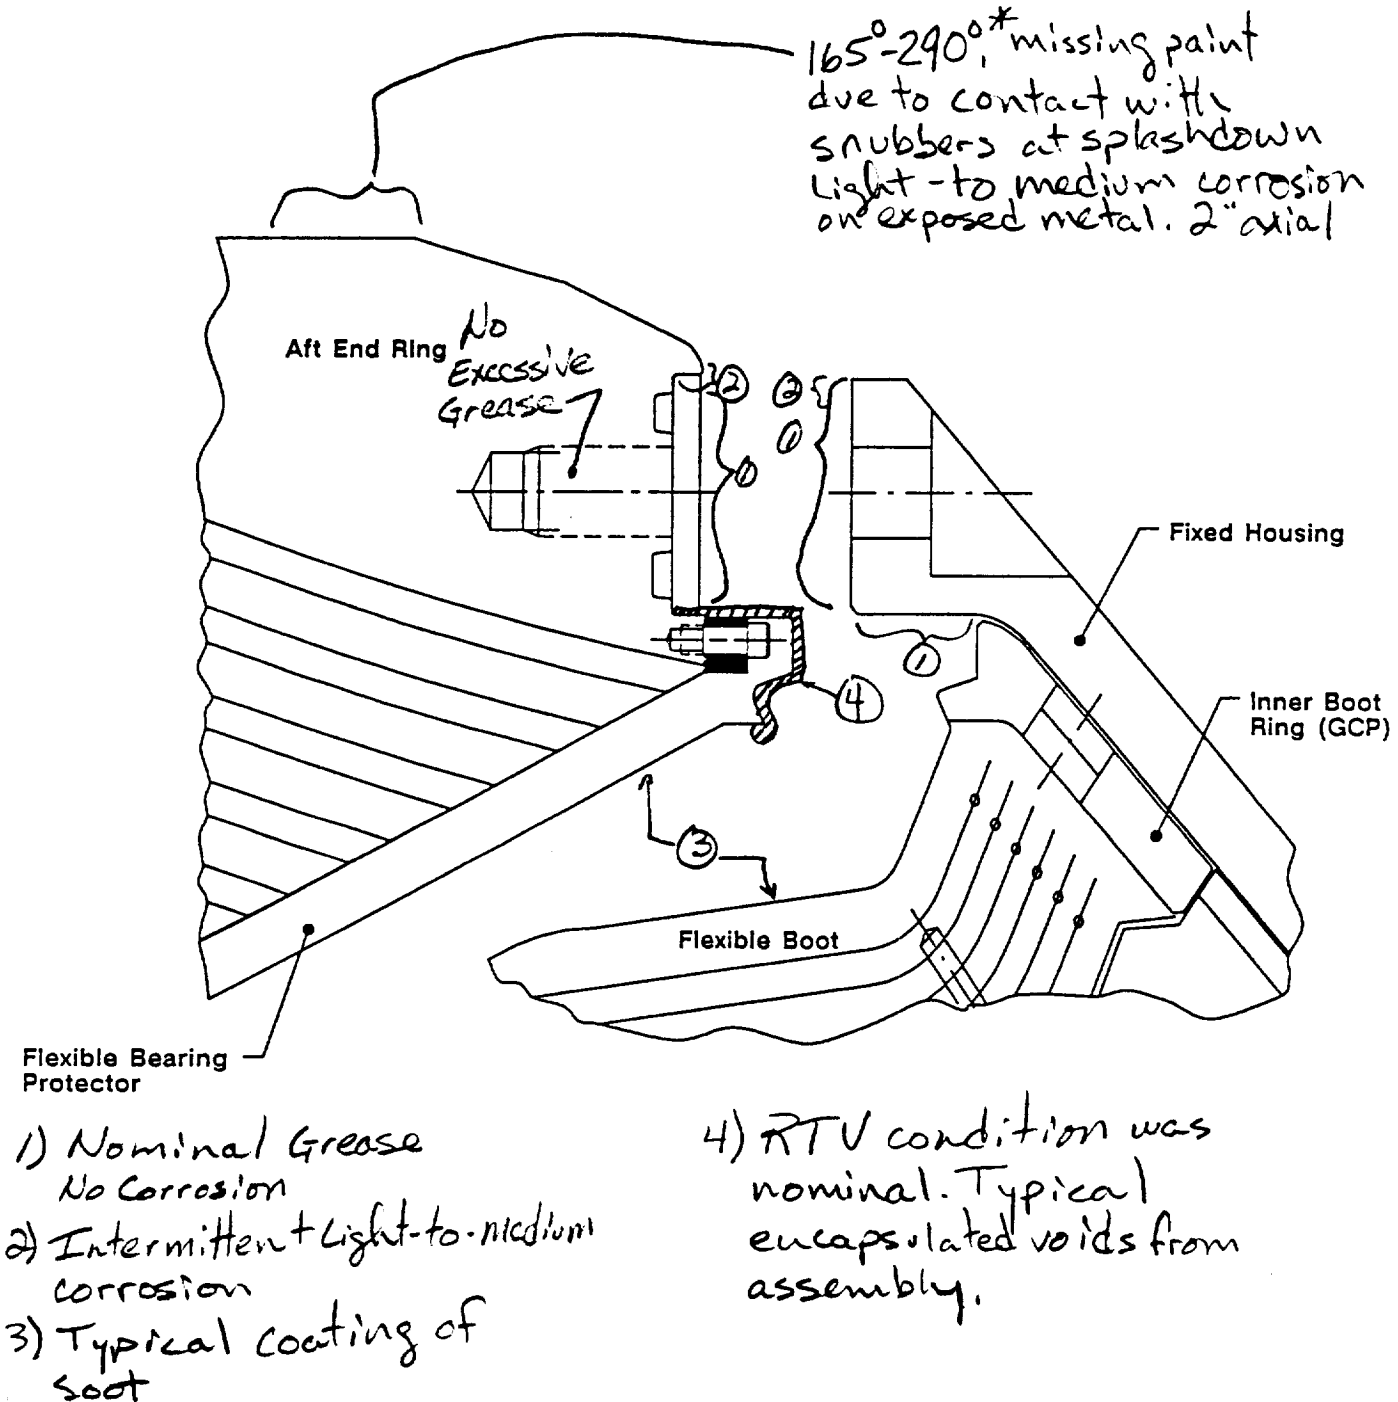 165°-290°,* missing paint
due to contact with
snubbers at splashdown
Light-to medium corrosion
on exposed metal. 2" axial
Aft End Ring
No
Excessive
Grease
2
2
1
1
Fixed Housing
1
4
Inner Boot
Ring (GCP)
3
Flexible Boot
Flexible Bearing
Protector
1) Nominal Grease
No Corrosion
2) Intermittent Light-to-medium
corrosion
3) Typical coating of
soot
4) RTV condition was
nominal. Typical
encapsulated voids from
assembly.